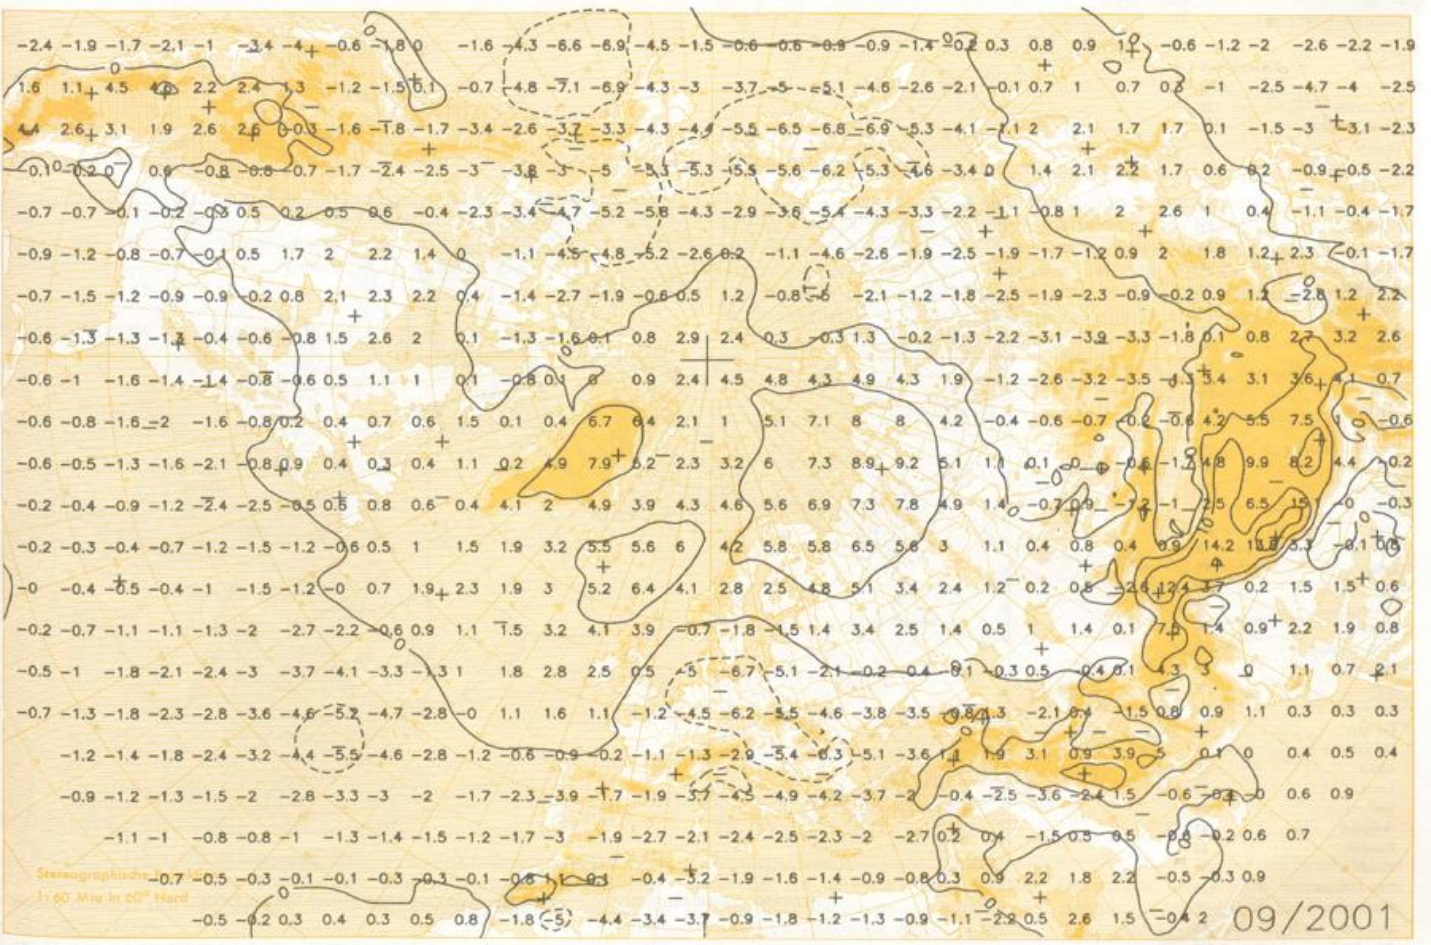 -2.4 -1.9 -1.7 -2.1 -1 -3.4 -4 -0.6 -1.8 0 -1.6 -4.3 -6.6 -6.9 -4.5 -1.5 -0.6 -0.6 -0.9 -0.9 -1.4 -0.2 0.3 0.8 0.9 -0.6 -1.2 -2 -2.6 -2.2 -1.9
1.6 1.1 4.5 2.2 2.4 1.3 -1.2 -1.5 0.1 -0.7 -4.8 -7.1 -6.9 -4.3 -3 -3.7 -5 -5.1 -4.6 -2.6 -2.1 -0.1 0.7 1 0.7 0.3 -1 -2.5 -4.7 -4 -2.5
4.4 2.6 3.1 1.9 2.6 2.6 -0.3 -1.6 -1.8 -1.7 -3.4 -2.6 -3.7 -3.3 -4.3 -4.4 -5.5 -6.5 -6.8 -6.9 -5.3 -4.1 -1.1 2 2.1 1.7 1.7 0.1 -1.5 -3 -3.1 -2.3
-0.1 -0.2 0 0.6 -0.8 -0.8 -0.7 -1.7 -2.4 -2.5 -3 -3.8 -3 -5 -5.3 -5.3 -5.5 -5.6 -6.2 -5.3 -4.6 -3.4 0 1.4 2.1 2.2 1.7 0.6 0.2 -0.9 -0.5 -2.2
-0.7 -0.7 -0.1 -0.2 -0.3 0.5 0.2 0.5 0.6 -0.4 -2.3 -3.4 -4.7 -5.2 -5.8 -4.3 -2.9 -3.6 -5.4 -4.3 -3.3 -2.2 -1.1 -0.8 1 2 2.6 1 0.4 -1.1 -0.4 -1.7
-0.9 -1.2 -0.8 -0.7 -0.1 0.5 1.7 2 2.2 1.4 0 -1.1 -4.5 -4.8 -5.2 -2.6 0.2 -1.1 -4.6 -2.6 -1.9 -2.5 -1.9 -1.7 -1.2 0.9 2 1.8 1.2 2.3 -0.1 -1.7
-0.7 -1.5 -1.2 -0.9 -0.9 -0.2 0.8 2.1 2.3 2.2 0.4 -1.4 -2.7 -1.9 -0.6 0.5 1.2 -0.8 -5 -2.1 -1.2 -1.8 -2.5 -1.9 -2.3 -0.9 -0.2 0.9 1.2 -2.8 1.2 2.2
-0.6 -1.3 -1.3 -1.3 -0.4 -0.6 -0.8 1.5 2.6 2 0.1 -1.3 -1.6 0.1 0.8 2.9 2.4 0.3 -0.3 1.3 -0.2 -1.3 -2.2 -3.1 -3.9 -3.3 -1.8 0.1 0.8 2.7 3.2 2.6
-0.6 -1 -1.6 -1.4 -1.4 -0.8 -0.6 0.5 1.1 1 0.1 -0.8 0.1 0 0.9 2.4 4.5 4.8 4.3 4.9 4.3 1.9 -1.2 -2.6 -3.2 -3.5 -1.3 3.4 3.1 3.6 4.1 0.7
-0.6 -0.8 -1.6 -2 -1.6 -0.8 0.2 0.4 0.7 0.6 1.5 0.1 0.4 6.7 6.4 2.1 1 5.1 7.1 8 8 4.2 -0.4 -0.6 -0.7 -0.2 -0.6 4.2 5.5 7.5 1 -0.6
-0.6 -0.5 -1.3 -1.6 -2.1 -0.8 0.9 0.4 0.3 0.4 1.1 0.2 4.9 7.9 6.2 2.3 3.2 6 7.3 8.9 9.2 5.1 1.1 0.1 0 -0.6 -1.7 4.8 9.9 8.2 4.4 -0.2
-0.2 -0.4 -0.9 -1.2 -2.4 -2.5 -0.5 0.6 0.8 0.6 0.4 4.1 2 4.9 3.9 4.3 4.6 5.6 6.9 7.3 7.8 4.9 1.4 -0.7 0.9 -1.2 -1 2.5 6.5 -0 -0.3
-0.2 -0.3 -0.4 -0.7 -1.2 -1.5 -1.2 -0.6 0.5 1 1.5 1.9 3.2 5.5 5.6 6 4.2 5.8 5.8 6.5 5.6 3 1.1 0.4 0.8 0.4 0.9 14.2 5.3 -0.1 0.8
-0 -0.4 -0.5 -0.4 -1 -1.5 -1.2 -0 0.7 1.9 2.3 1.9 3 5.2 6.4 4.1 2.8 2.5 4.8 5.1 3.4 2.4 1.2 0.2 0.6 -2.6 12.4 3.7 0.2 1.5 1.5 0.6
-0.2 -0.7 -1.1 -1.1 -1.3 -2 -2.7 -2.2 -0.6 0.9 1.1 1.5 3.2 4.1 3.9 -0.7 -1.8 -1.5 1.4 3.4 2.5 1.4 0.5 1 1.4 0.1 1.4 0.9 2.2 1.9 0.8
-0.5 -1 -1.8 -2.1 -2.4 -3 -3.7 -4.1 -3.3 -1.3 1 1.8 2.8 2.5 0.5 -5 -6.7 -5.1 -2.1 -0.2 -0.4 -0.1 -0.3 0.5 -0.4 0.1 4.3 3 0 1.1 0.7 2.1
-0.7 -1.3 -1.8 -2.3 -2.8 -3.6 -4.6 -5.2 -4.7 -2.8 -0 1.1 1.6 1.1 -1.2 -4.5 -6.2 -5.5 -4.6 -3.8 -3.5 -0.8 1.3 -2.1 0.4 -1.5 0.8 0.9 1.1 0.3 0.3 0.3
-1.2 -1.4 -1.8 -2.4 -3.2 -4.4 -5.5 -4.6 -2.8 -1.2 -0.6 -0.9 -0.2 -1.1 -1.3 -2.9 -5.4 -6.3 -5.1 -3.6 1.1 1.9 3.1 0.9 3.9 5 0.1 0 0.4 0.5 0.4
-0.9 -1.2 -1.3 -1.5 -2 -2.8 -3.3 -3 -2 -1.7 -2.3 -3.9 -1.7 -1.9 -3.7 -4.5 -4.9 -4.2 -3.7 -2 -0.4 -2.5 -3.6 -2.4 1.5 -0.6 -0.4 -0 0.6 0.9
-1.1 -1 -0.8 -0.8 -1 -1.3 -1.4 -1.5 -1.2 -1.7 -3 -1.9 -2.7 -2.1 -2.4 -2.5 -2.3 -2 -2.7 0.2 0.4 -1.5 0.5 0.5 -0.8 -0.2 0.6 0.7
-0.7 -0.5 -0.3 -0.1 -0.1 -0.3 -0.3 -0.1 -0.8 1.1 0.1 -0.4 -3.2 -1.9 -1.6 -1.4 -0.9 -0.8 0.3 0.9 2.2 1.8 2.2 -0.5 -0.3 0.9
Stereographische
1:60 Mio in 60° Nord
-0.5 -0.2 0.3 0.4 0.3 0.5 0.8 -1.8 -5 -4.4 -3.4 -3.7 -0.9 -1.8 -1.2 -1.3 -0.9 -1.1 -2.2 0.5 2.6 1.5 -0.4 2
09/2001